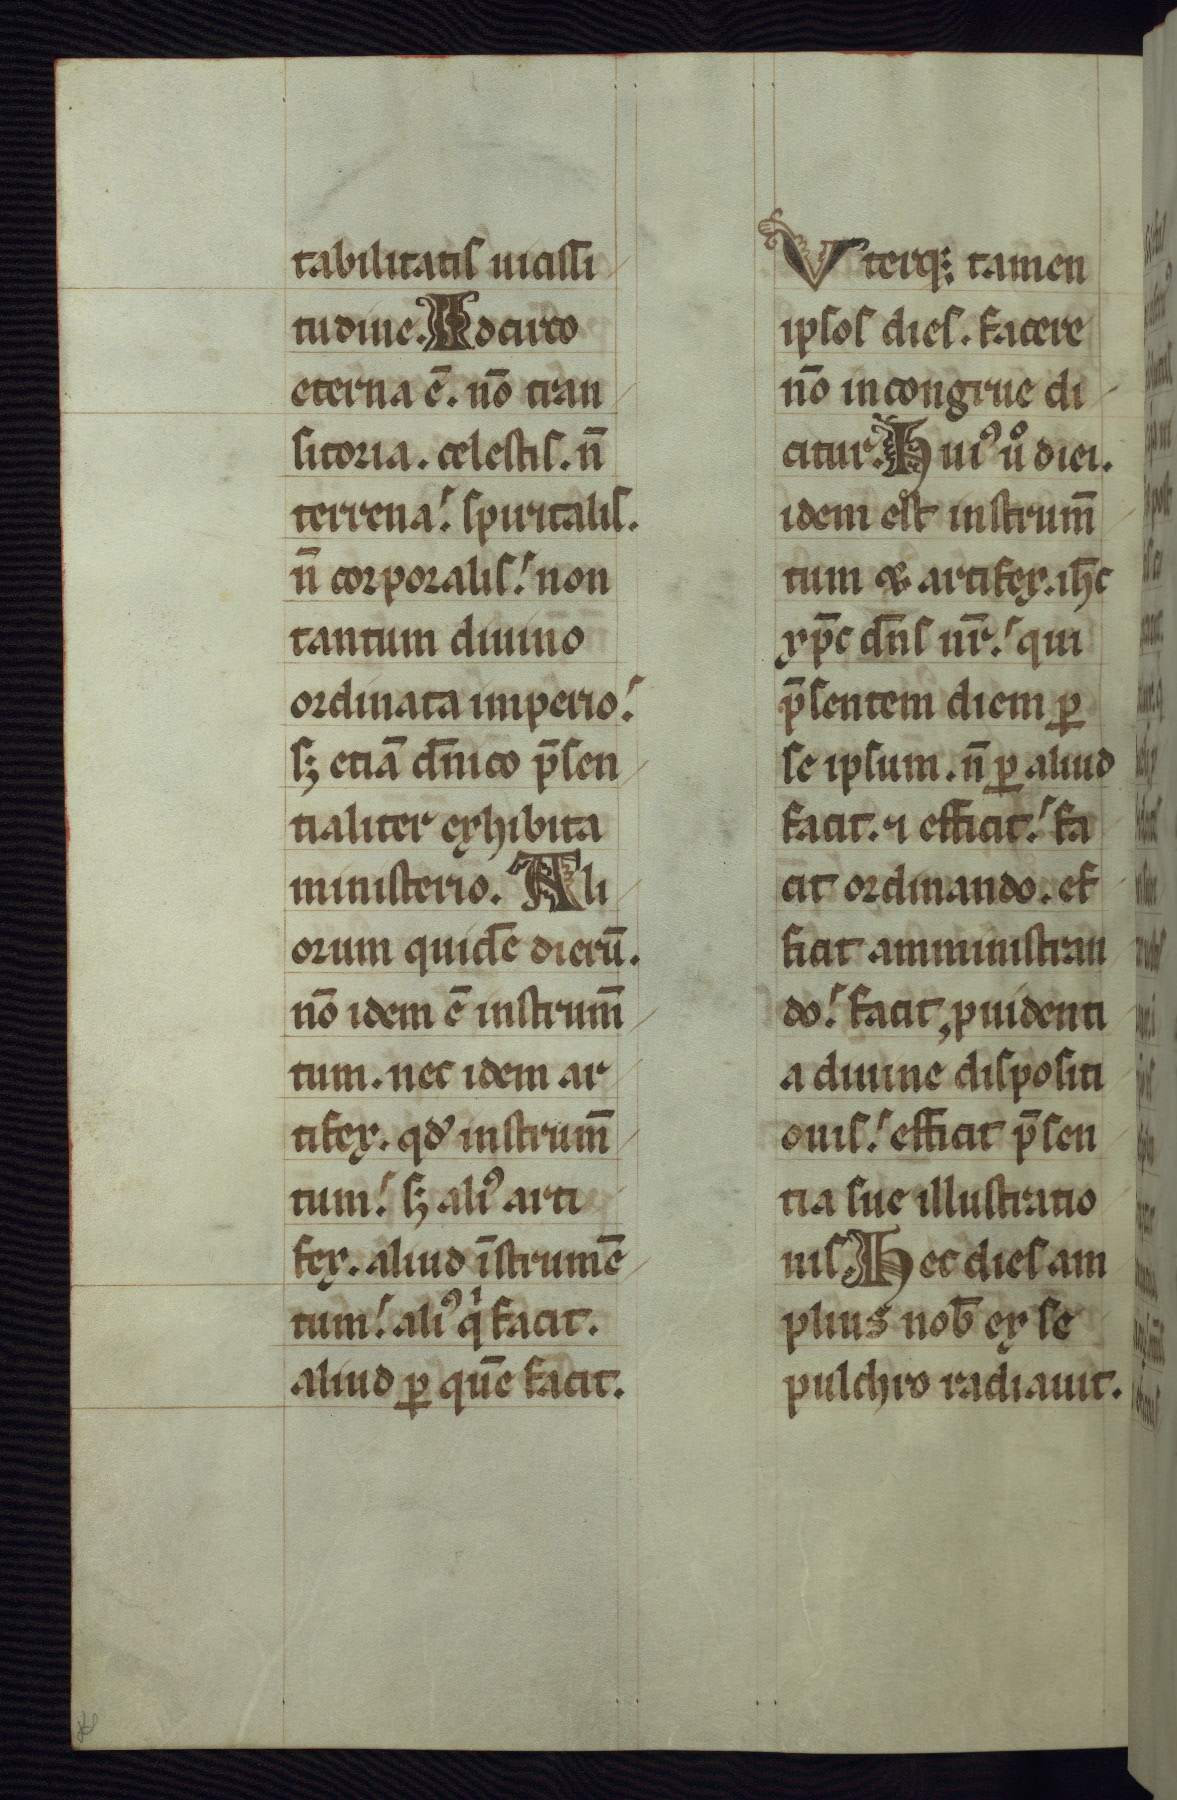 tabilitatis uicissi
tudine. Idcirco
eterna ē. nō tran
sitoria. celestis. n̄
terrena! spiritalis.
n̄ corporalis! non
tantum diuino
ordinata imperio!
sꝫ etiā dn̄ico p̄sen
tialiter exhibita
ministerio. Ali
orum quidē dierū.
nō idem ē instrum̄
tum. nec idem ar
tifex. qd' instrum̄
tum! sꝫ aliꝰ arti
fex. aliud īstrumē
tum! aliꝰ qͥ facit.
aliud ꝑ quē facit.
Vterqꝫ tamen
ipsos dies. facere
nō incongrue di
citur. Huiꝰ uͦ diei.
idem est instrum̄
tum & artifex. ih̄c
xp̄c dn̄s nr̄! qui
p̄sentem diem ꝑ
se ipsum. n̄ ꝑ aliud
facit. ⁊ efficit! fa
cit ordinando. ef
ficit amministran
do! facit ꝓuidenti
a diuine dispositi
onis! efficit p̄sen
tia sue illustratio
nis. Hec dies am
plius nob̄ ex se
pulchro radiauit.